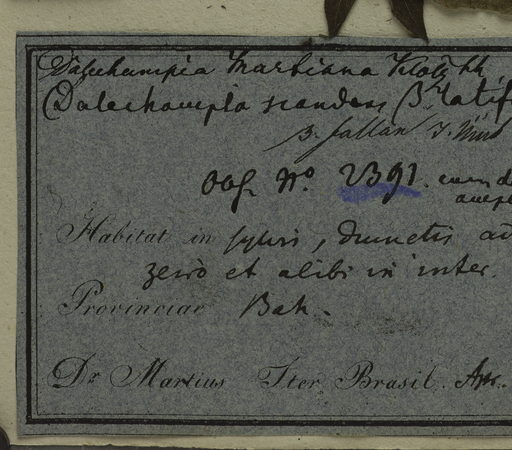 Dalechampia Martiana Klotzsch
Dalechampia scandens β latif
β. fallax J. Müll
Obs. Nº. 2391. cum de
Habitat in sylvis, dumetis ad
et alibi in inter.
Provinciae Bah.
Dr. Martius Iter Brasil.